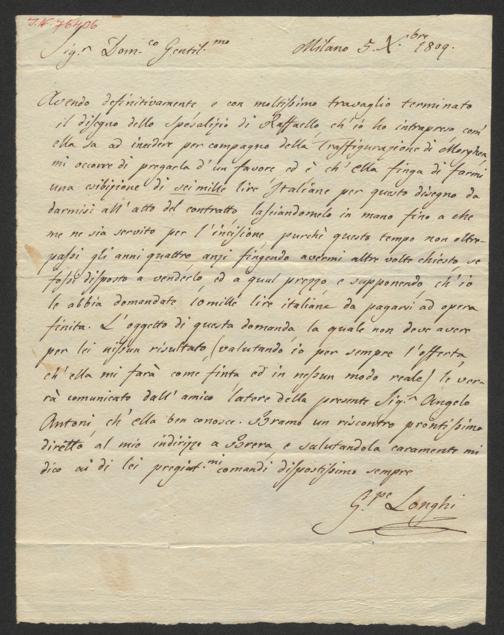 I.N. 76406
Sig.r Dom.co Gentil.mo Milano 5. X.bre 1809.
Avendo definitivamente e con moltissimo travaglio terminato
il disegno dello Sposalizio di Raffaello ch'io ho intrapreso com'
ella sa ad incidere per compagno della Traffigurazione di Morghen,
mi occorre di pregarla d'un favore ed è ch'ella finga di farmi
una esibizione di sei mille lire Italiane per questo disegno da
darmisi all'atto del contratto, lasciandomelo in mano fino a che
me ne sia servito per l'incisione purchè questo tempo non oltre-
passi gli anni quattro, anzi fingendo avermi altre volte chiesto se
fossi disposto a venderlo, ed a qual prezzo e supponendo ch'io
le abbia domandate 10 mille lire italiane da pagarsi ad opera
finita. L'oggetto di questa domanda la quale non deve avere
per lei nissun risultato, (valutando io per sempre l'offerta
ch'ella mi farà come finta ed in nessun modo reale) le ver-
rà comunicato dall'amico latore della presente Sig.r Angelo
Antoni ch'ella ben conosce. Bramo un riscontro prontissimo
diretto al mio indirizzo a Brera, e salutandola caramente mi
dico ai di lei pregiat.mi comandi dispostissimo sempre
G.pe Longhi